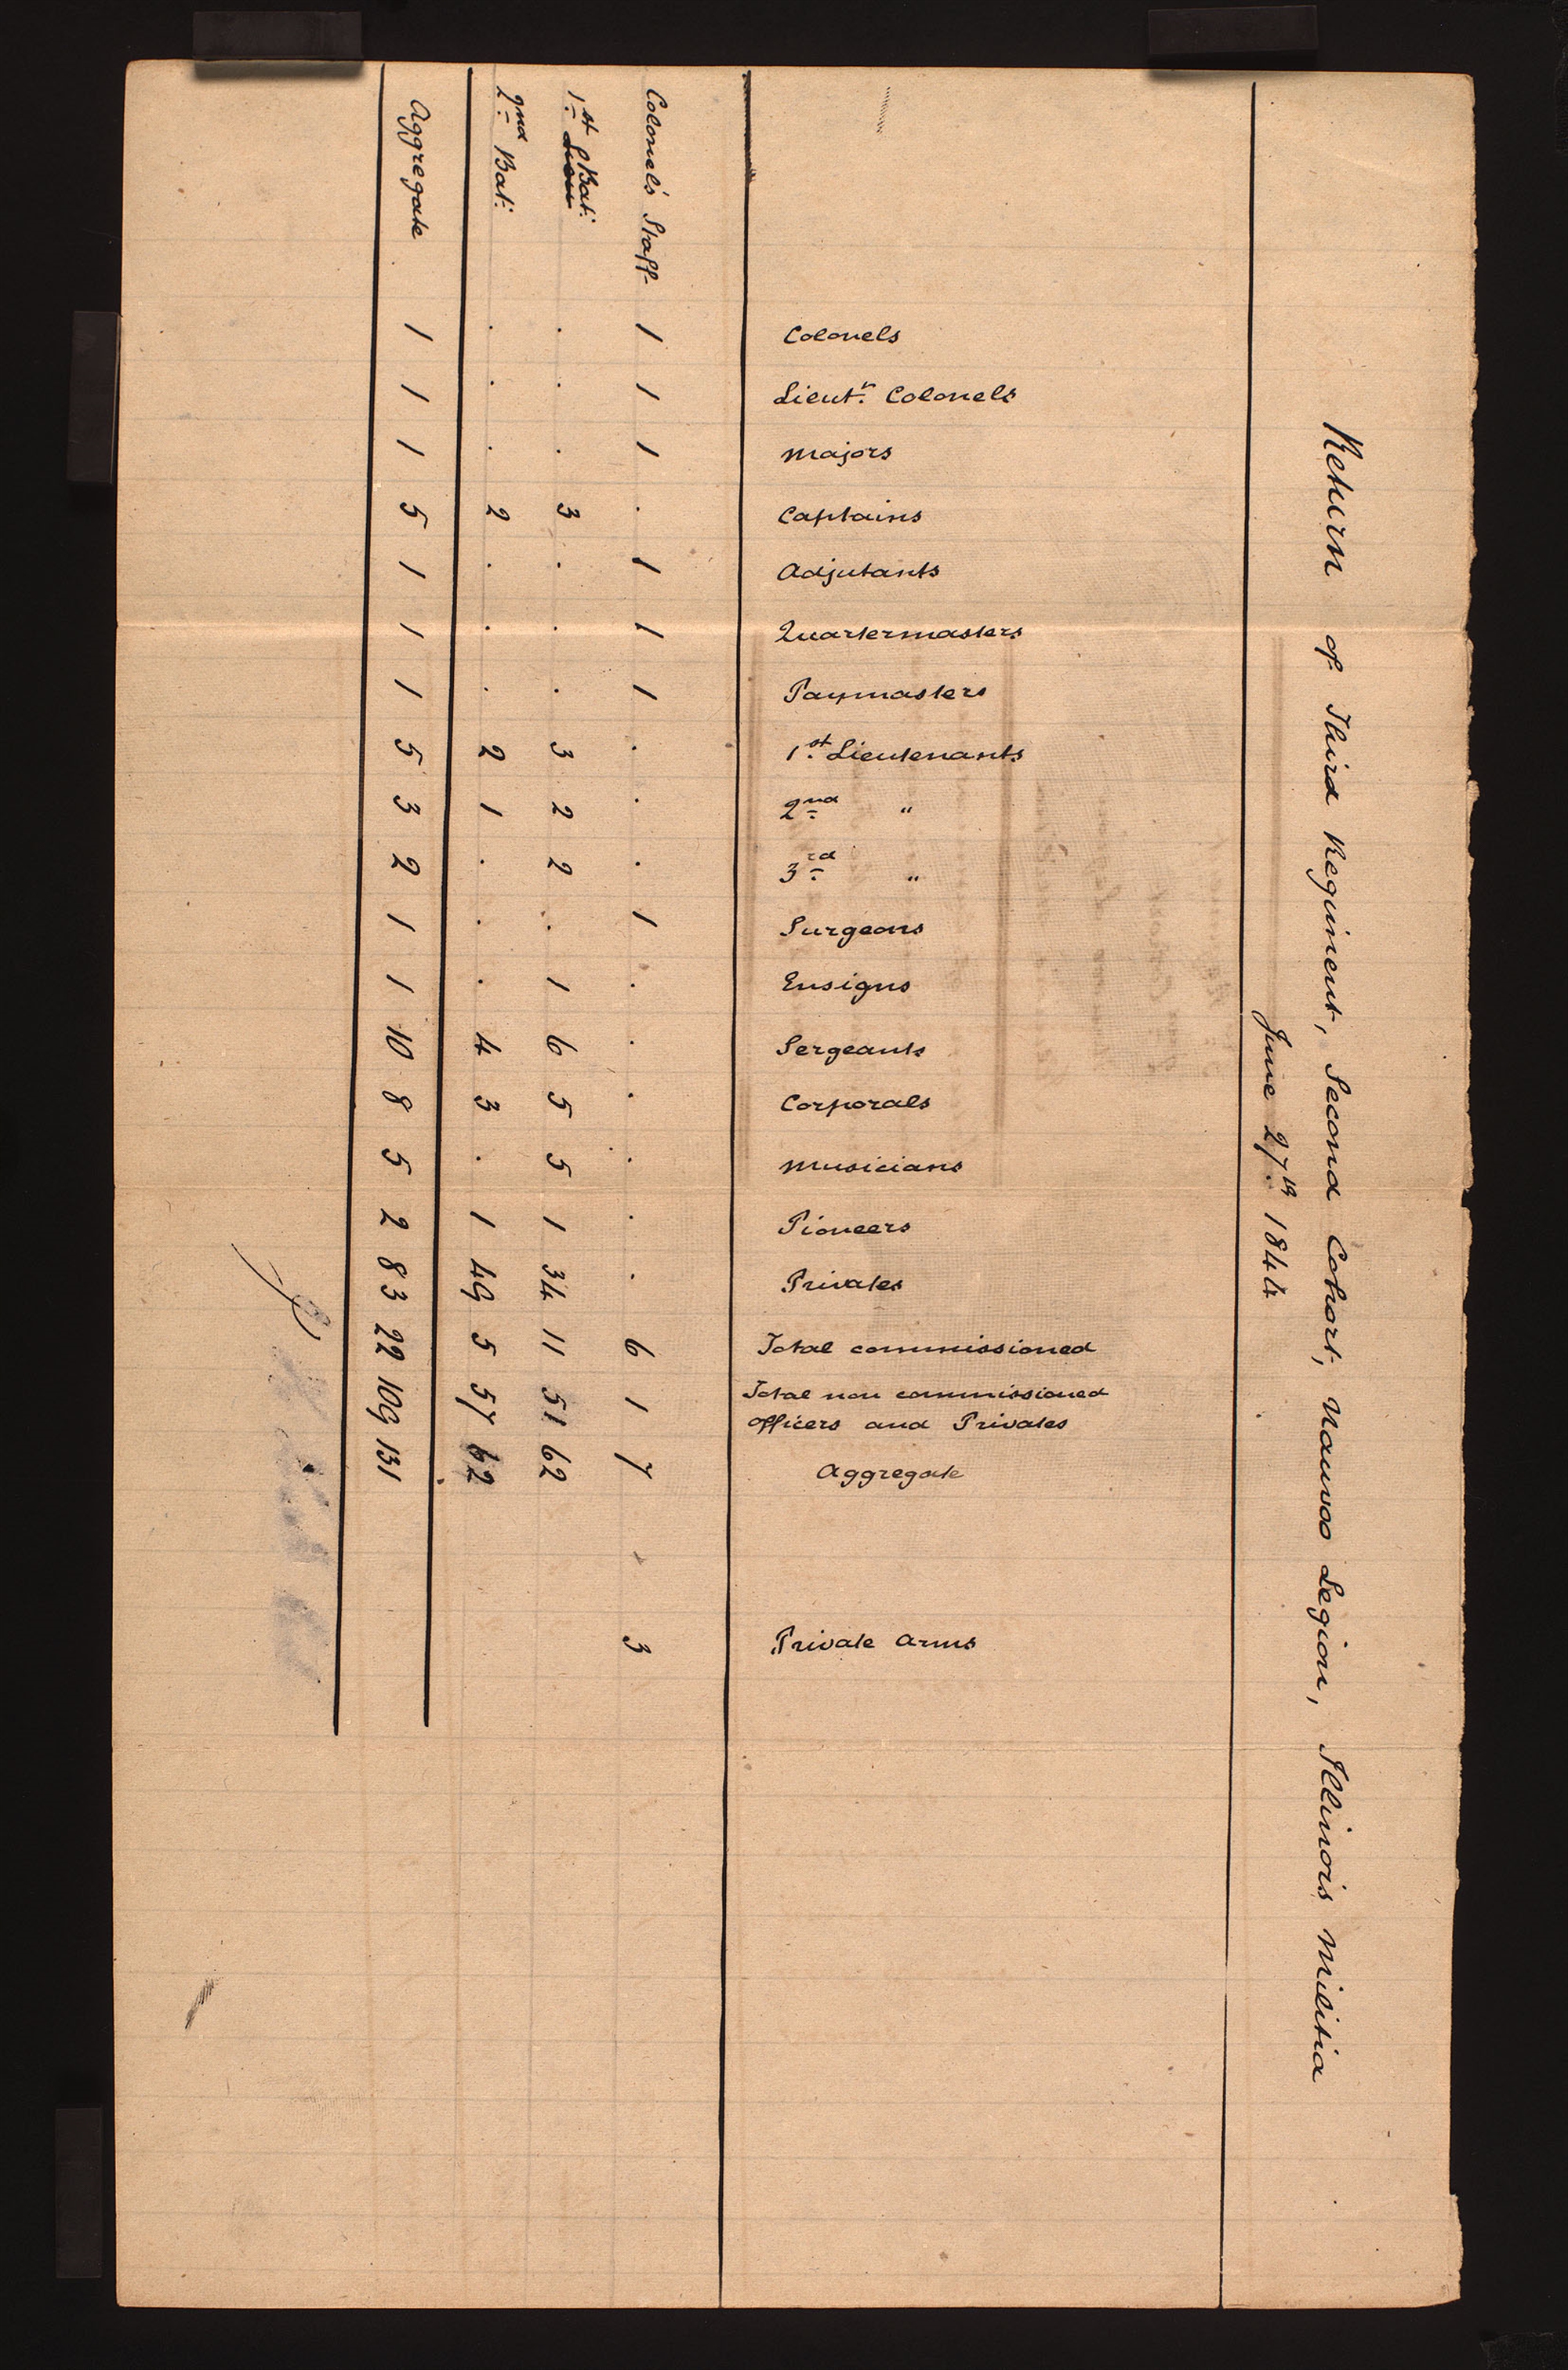 Return of Third Regiment, Second Cohort, Nauvoo Legion, Illinois Militia
June 27th 1844
Colonels
Lieut.n Colonels
Majors
Captains
Adjutants
Quartermasters
Paymasters
1st Lieutenants
2nd "
3rd "
Surgeons
Ensigns
Sergeants
Corporals
Musicians
Pioneers
Privates
Total commissioned
Total non commissioned
officers and Privates
Aggregate
Private Arms
Colonel's Staff 1 1 1 . 1 1 1 . . . 1 . . . . . . 6 1 7 3
1st Bat: . . . 3 . . . 3 2 2 . 1 6 5 5 1 34 11 51 62
2nd Bat: . . . 2 . . . 2 1 . . . 4 3 . 1 49 5 57 62
Aggregate 1 1 1 5 1 1 1 5 3 2 1 1 10 8 5 2 83 22 109 131